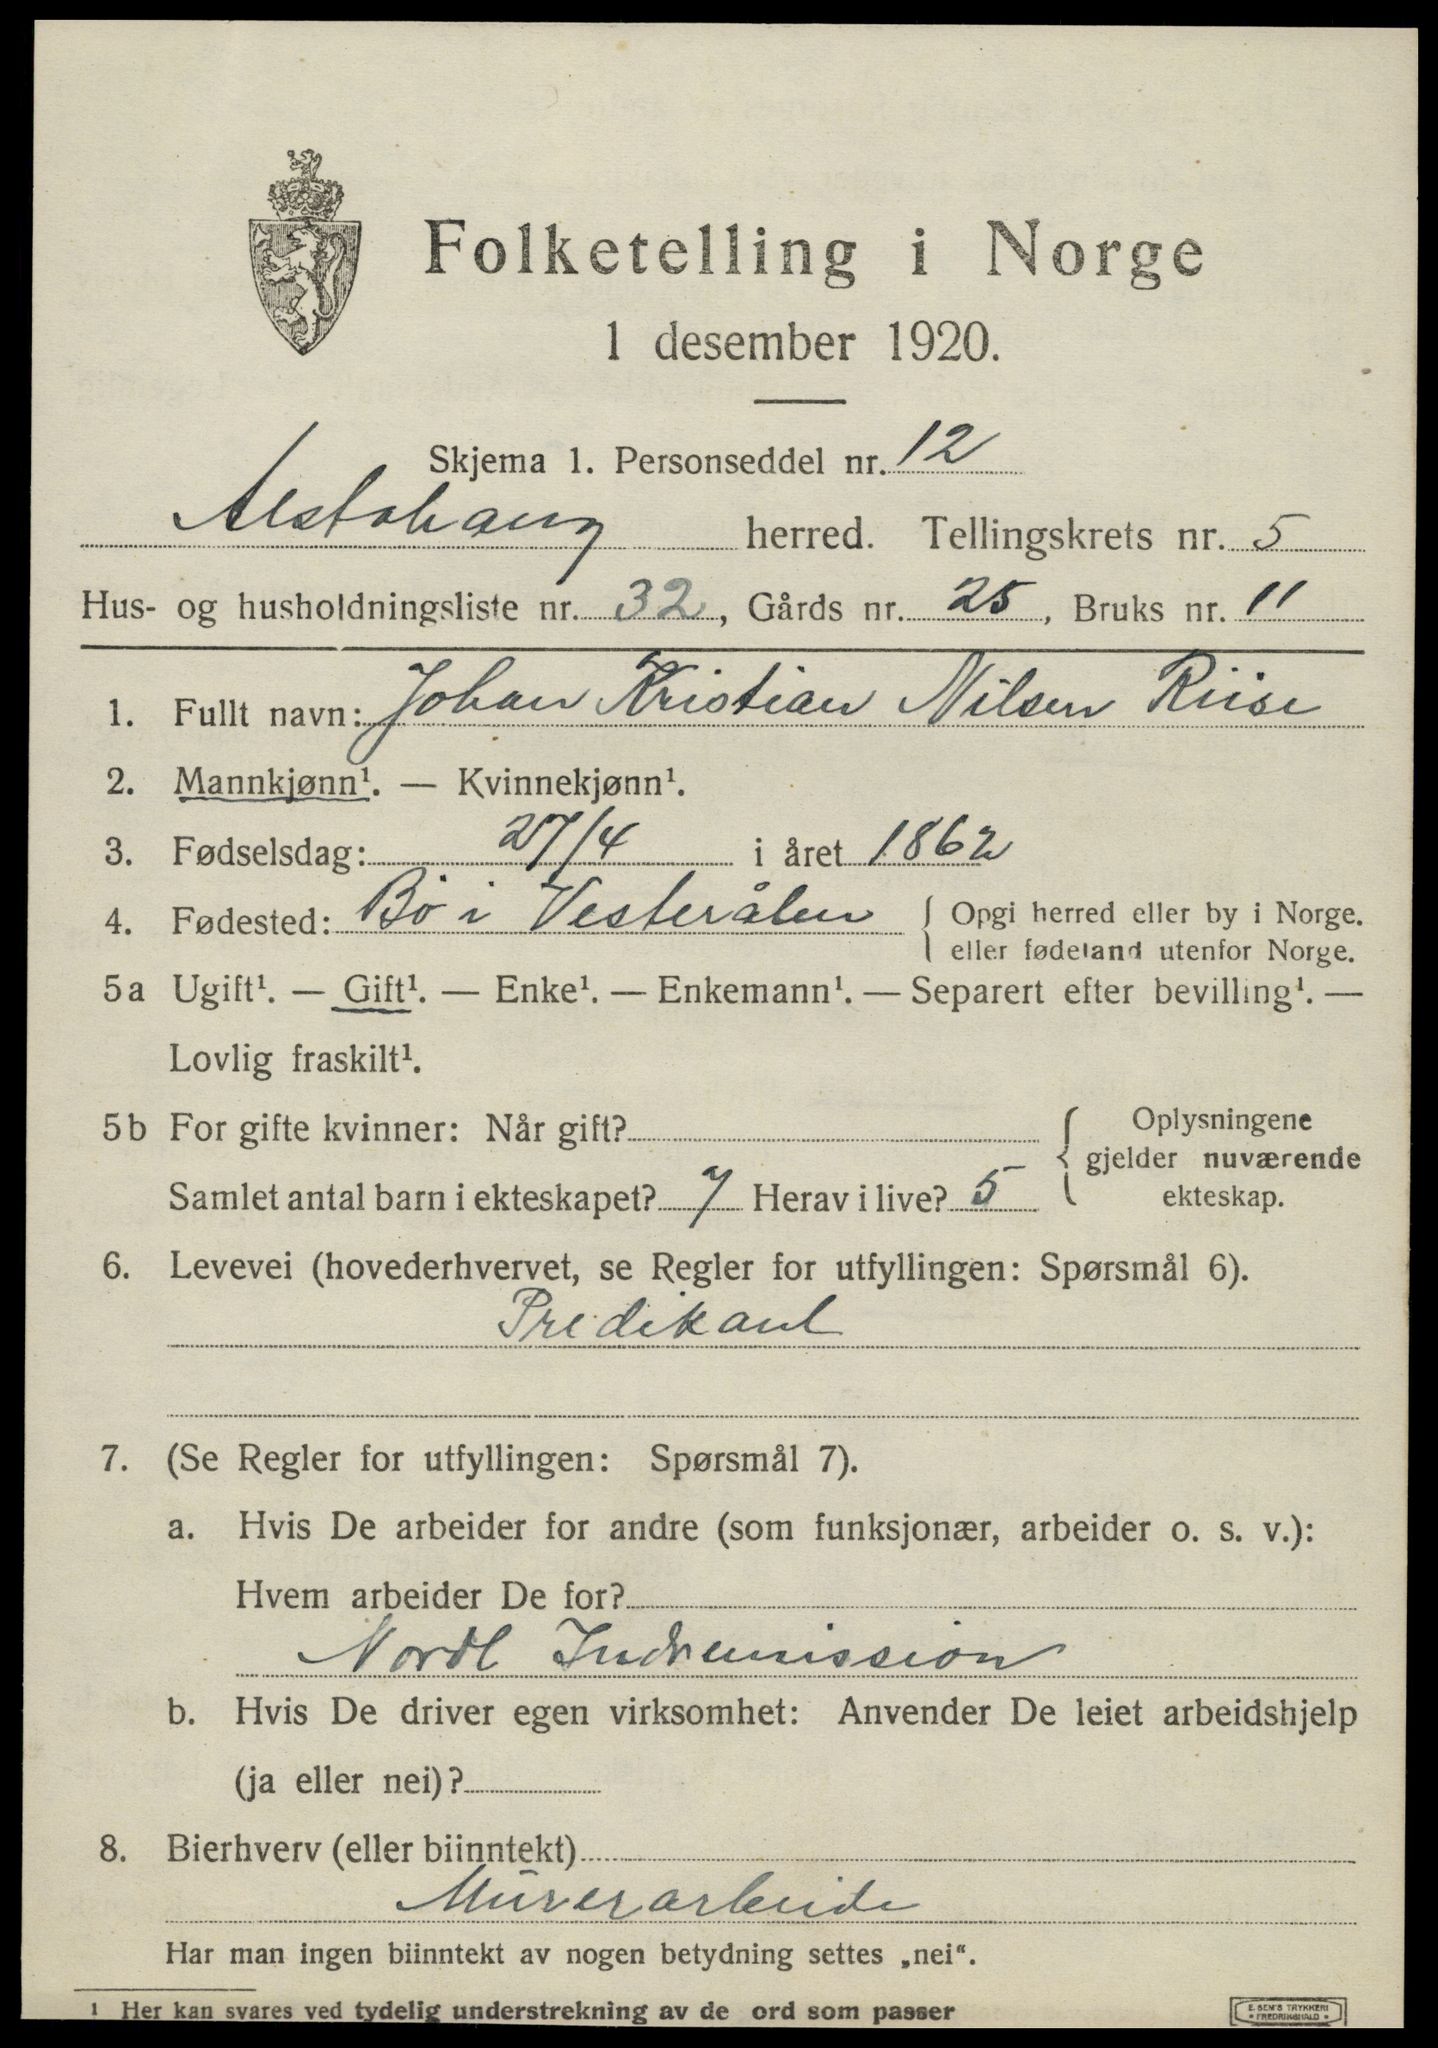 Folketelling i Norge
1 desember 1920.
Skjema 1. Personseddel nr. 12
Alstahaug herred. Tellingskrets nr. 5
Hus- og husholdningsliste nr. 32, Gårds nr. 25, Bruks nr. 11
1. Fullt navn: Johan Kristian Nilsen Riise
2. Mannkjønn¹. — Kvinnekjønn¹.
3. Fødselsdag: 27/4 i året 1862
4. Fødested: Bö i Vesterålen { Opgi herred eller by i Norge.
eller fødeland utenfor Norge.
5a Ugift¹. — Gift¹. — Enke¹. — Enkemann¹. — Separert efter bevilling¹. —
Lovlig fraskilt¹.
5b For gifte kvinner: Når gift?
Samlet antal barn i ekteskapet? 7 Herav i live? 5
Oplysningene
gjelder nuværende
ekteskap.
6. Levevei (hovederhvervet, se Regler for utfyllingen: Spørsmål 6).
Predikant
7. (Se Regler for utfyllingen: Spørsmål 7).
a. Hvis De arbeider for andre (som funksjonær, arbeider o. s. v.):
Hvem arbeider De for?
Nordl Indremission
b. Hvis De driver egen virksomhet: Anvender De leiet arbeidshjelp
(ja eller nei)?
8. Bierhverv (eller biinntekt)
Murerarbeide
Har man ingen biinntekt av nogen betydning settes „nei“.
¹ Her kan svares ved tydelig understrekning av de ord som passer
E. SEM'S TRYKKERI
• FREDRIKSHALD •